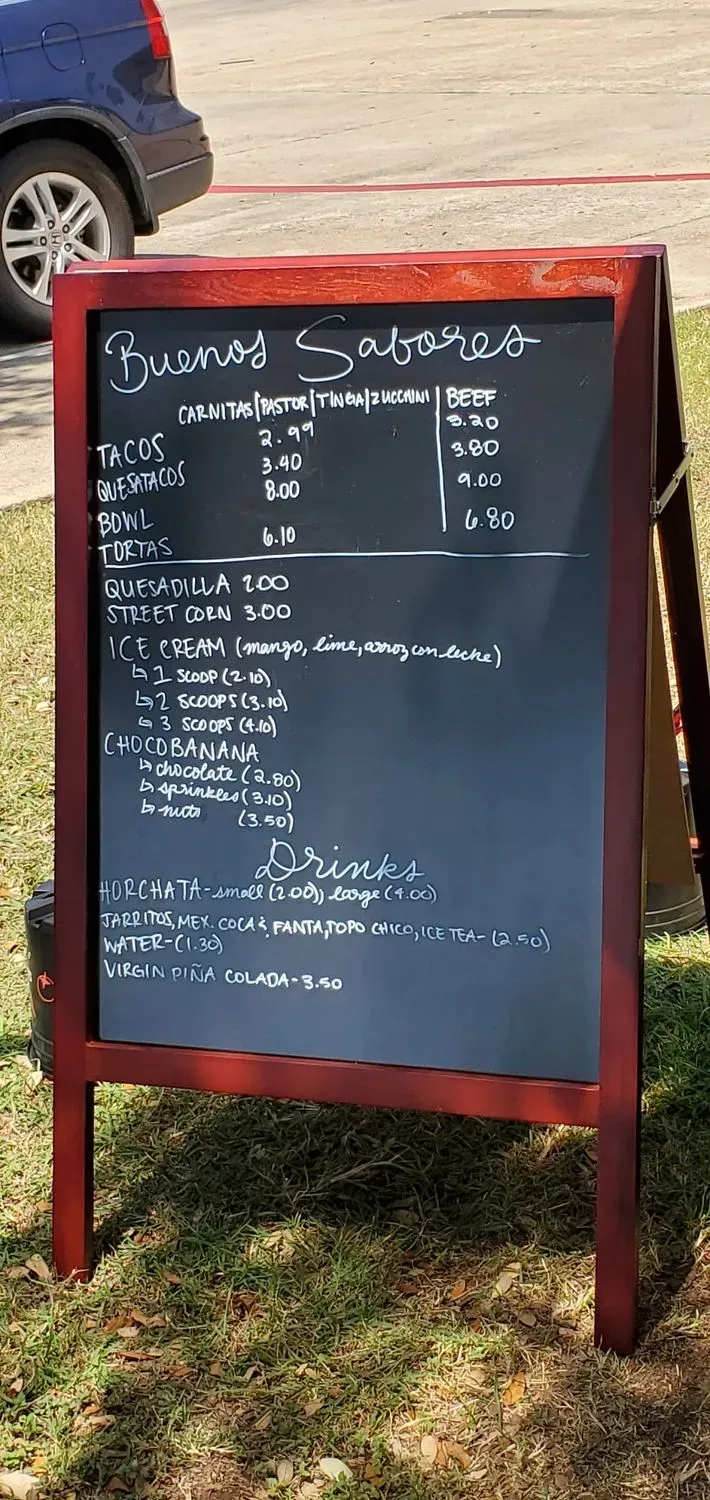 Buenos Sabores
CARNITAS|PASTOR|TINGA|ZUCCHINI | BEEF
TACOS 2.99 3.20
QUESATACOS 3.40 3.80
BOWL 8.00 9.00
TORTAS 6.10 6.80
QUESADILLA 2.00
STREET CORN 3.00
ICE CREAM (mango, lime, arroz con leche)
↳ 1 SCOOP (2.10)
↳ 2 SCOOPS (3.10)
↳ 3 SCOOPS (4.10)
CHOCOBANANA
↳ chocolate (2.80)
↳ sprinkles (3.10)
↳ nuts (3.50)
Drinks
HORCHATA - small (2.00), large (4.00)
JARRITOS, MEX. COCA &, FANTA, TOPO CHICO, ICE TEA - (2.50)
WATER - (1.30)
VIRGIN PIÑA COLADA - 3.50